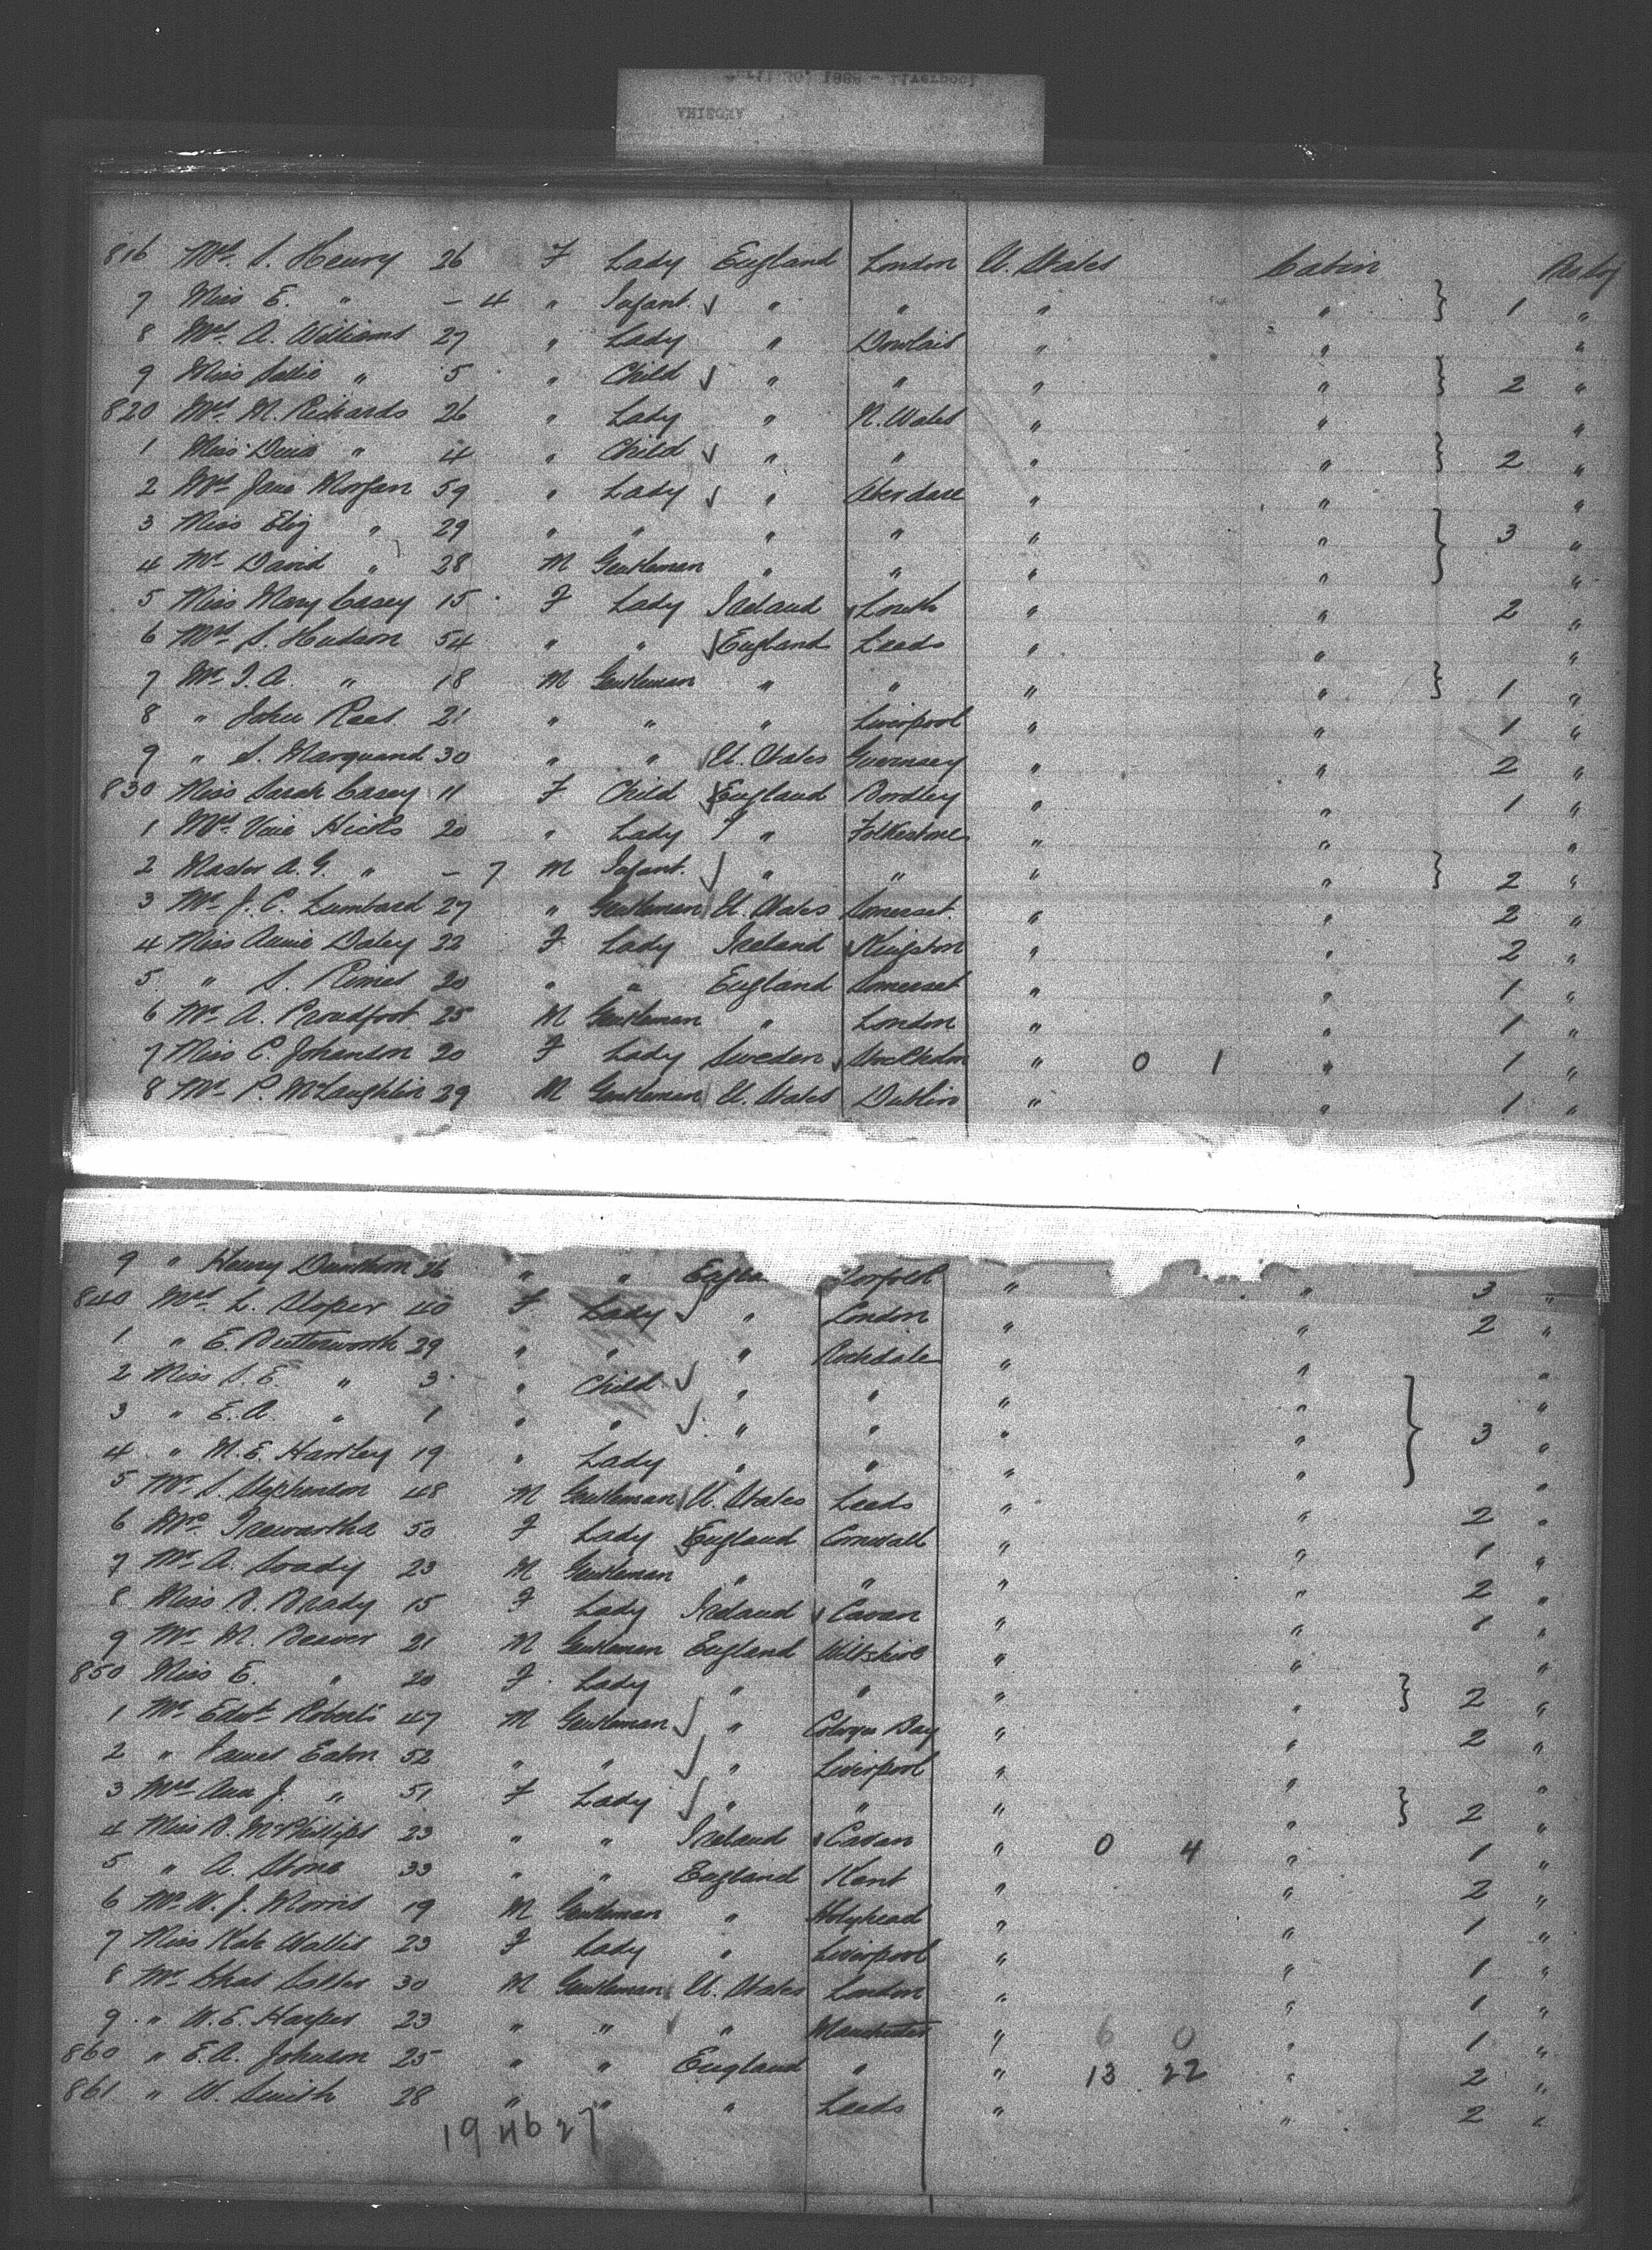 816 Mrs. S. Henry 26 F Lady England London U. States Cabin
7 Miss E. " - 4 " Infant " " " " 1 "
8 Mrs. A. Williams 27 " Lady " Dowlais " " "
9 Miss Sallie " 5 " Child " " " " 2 "
820 Mrs. M. Richards 26 " Lady " N. Wales " " "
1 Miss " 4 " Child " " " " 2 "
2 Mrs Jane Morgan 59 " Lady " Aberdare " " "
3 Miss Eliz " 29 " " " " " " 3 "
4 Mr David " 28 M Gentleman " " " " "
5 Miss Mary Casey 15 F Lady Ireland Louth " " 2 "
6 Mrs S. Hudson 54 " " England Leeds " " "
7 Mr J. A. " 18 M Gentleman " " " " 1 "
8 " John Rees 21 " " " Liverpool " " 1 "
9 " S. Marquand 30 " " U. States Guernsey " " 2 "
830 Miss Sarah Casey 11 F Child England Bordley " " 1 "
1 Mrs Hicks 20 " Lady " Folkestone " " "
2 Master A. G. " - 7 M Infant " " " " 2 "
3 Mr J. C. Lumbard 27 " Gentleman U. States Somerset " " 2 "
4 Miss Annie Daley 22 F Lady Ireland Kingston " " 2 "
5 " S. 20 " " England Somerset " " 1 "
6 Mr A. Proudfoot 25 M Gentleman " London " " 1 "
7 Miss C. Johanson 20 F Lady Sweden Stockholm " 0 1 " 1 "
8 Mr P. McLaughlin 29 M Gentleman U. States Dublin " " 1 "
9 " Henry 26 " " Engla orfolk " " 3 "
840 Mrs L. Sloper 40 F Lady " London " " 2 "
1 " E. Butterworth 29 " " " Rochdale " " "
2 Miss S. E. " 3 " Child " " " " "
3 " E. A. " 1 " " " " " " 3 "
4 " M. E. Hartley 19 " Lady " " " " "
5 Mr S. Stephenson 48 M Gentleman U. States Leeds " " 2 "
6 Mrs Trewartha 50 F Lady England Cornwall " " 1 "
7 Mr A. Soady 23 M Gentleman " " " " 2 "
8 Miss B. Brady 15 F Lady Ireland Cavan " " 1 "
9 Mr M. Beaver 21 M Gentleman England Wiltshire " " "
850 Miss E. " 20 F Lady " " " " 2 "
1 Mr Edwd. Roberts 47 M Gentleman " Colwyn Bay " " 2 "
2 " James Eaton 52 " " " Liverpool " " "
3 Mrs Ann J. " 51 F Lady " " " " 2 "
4 Miss B. McPhillips 23 " " Ireland Cavan " 0 4 " 1 "
5 " A. Stone 33 " " England Kent " " 2 "
6 Mr W. J. Morris 19 M Gentleman " Holyhead " " 1 "
7 Miss Kate Wallis 23 F Lady " Liverpool " " 1 "
8 Mr Chas Salter 30 M Gentleman U. States London " " 1 "
9 " W. E. Harper 23 " " " Manchester " 6 0 " 1 "
860 " E. A. Johnson 25 " " England " " 13 22 " 2 "
861 " W. Smith 28 " " " Leeds " " 2 "